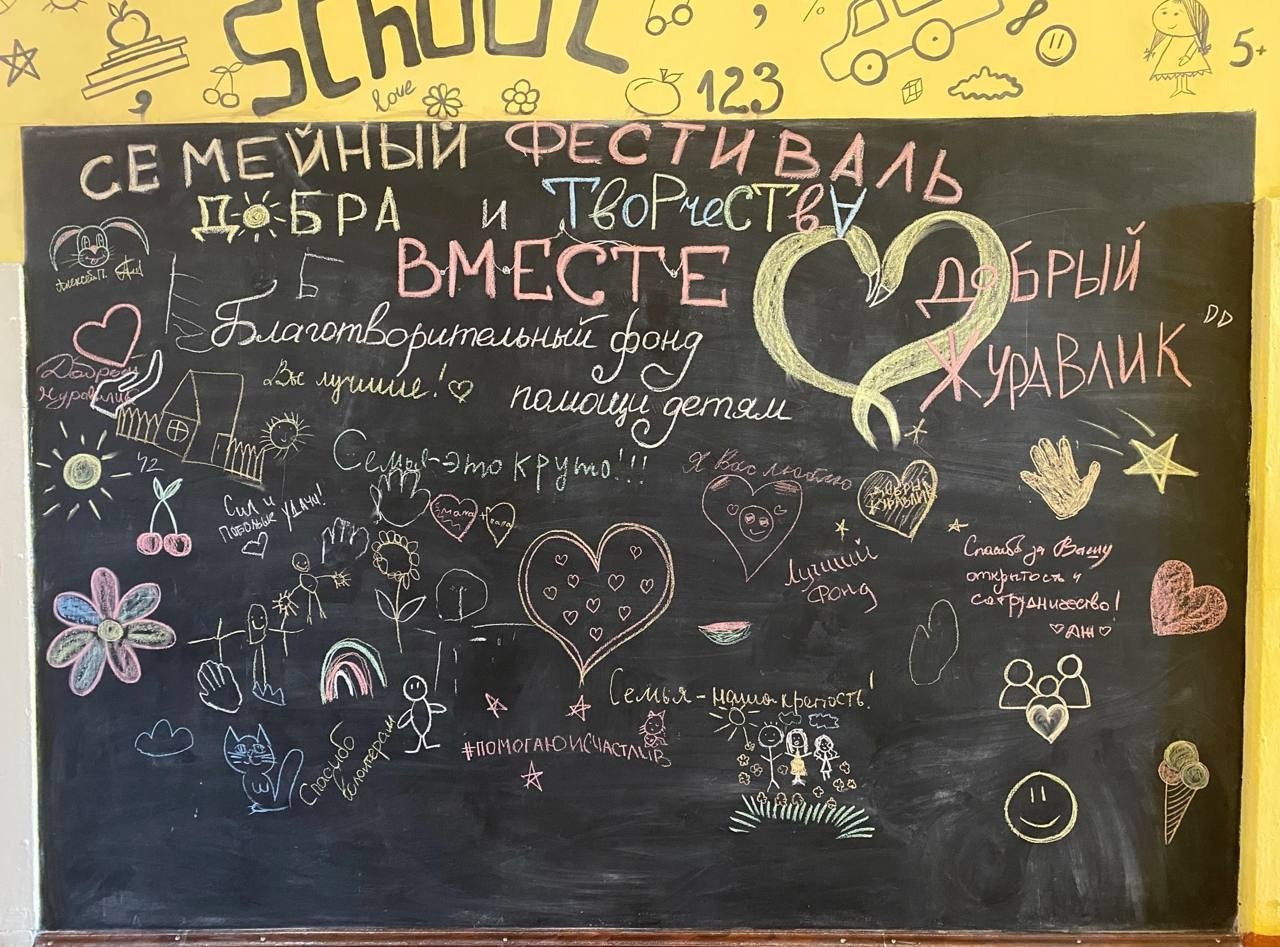 SCHOOL
love
123
5+
СЕМЕЙНЫЙ ФЕСТИВАЛЬ
ДОБРА И ТВОРЧЕСТВА
ВМЕСТЕ
ДОБРЫЙ
ЖУРАВЛИК
Алексей П.
Б
Благотворительный фонд
помощи детям
Добрый
Журавлик
Вы лучшие!
Семья-это круто!!!
Я Вас люблю
ДОБРЫЙ
ЖУРАВЛИК
Сил и
побольше удачи!
мама
папа
Лучший
Фонд
Спасибо за Вашу
открытость и
сотрудничество!
АЖ
Семья-наша крепость!
#ПОМОГАЮИСЧАСТЛИВ
Спасибо
волонтерам